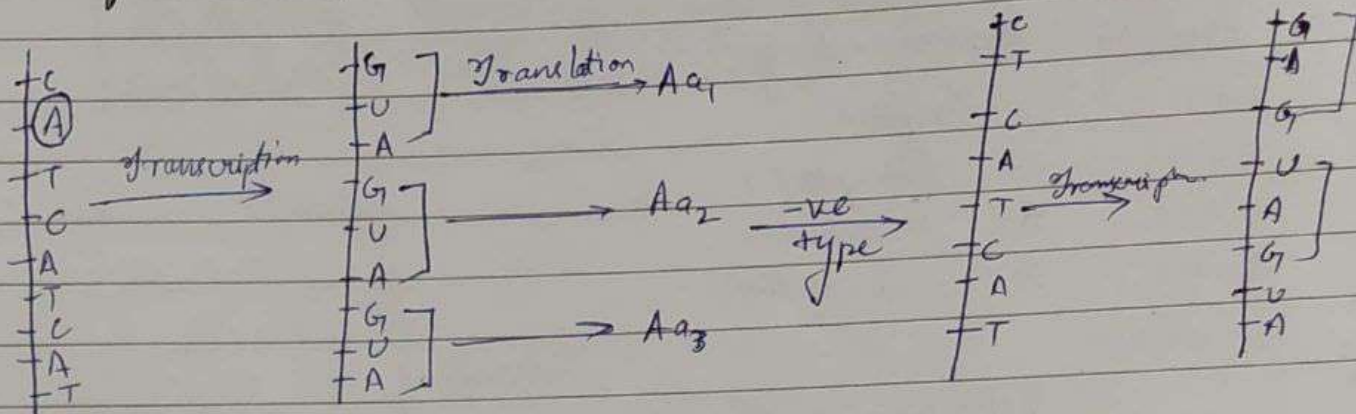 C
(A)
T
C
A
T
C
A
T
Transcription
G
U
A
G
U
A
G
U
A
Translation
Aa1
Aa2
Aa3
-ve
type
C
T
C
A
T
C
A
T
Transcriptn.
G
A
G
U
A
G
U
A